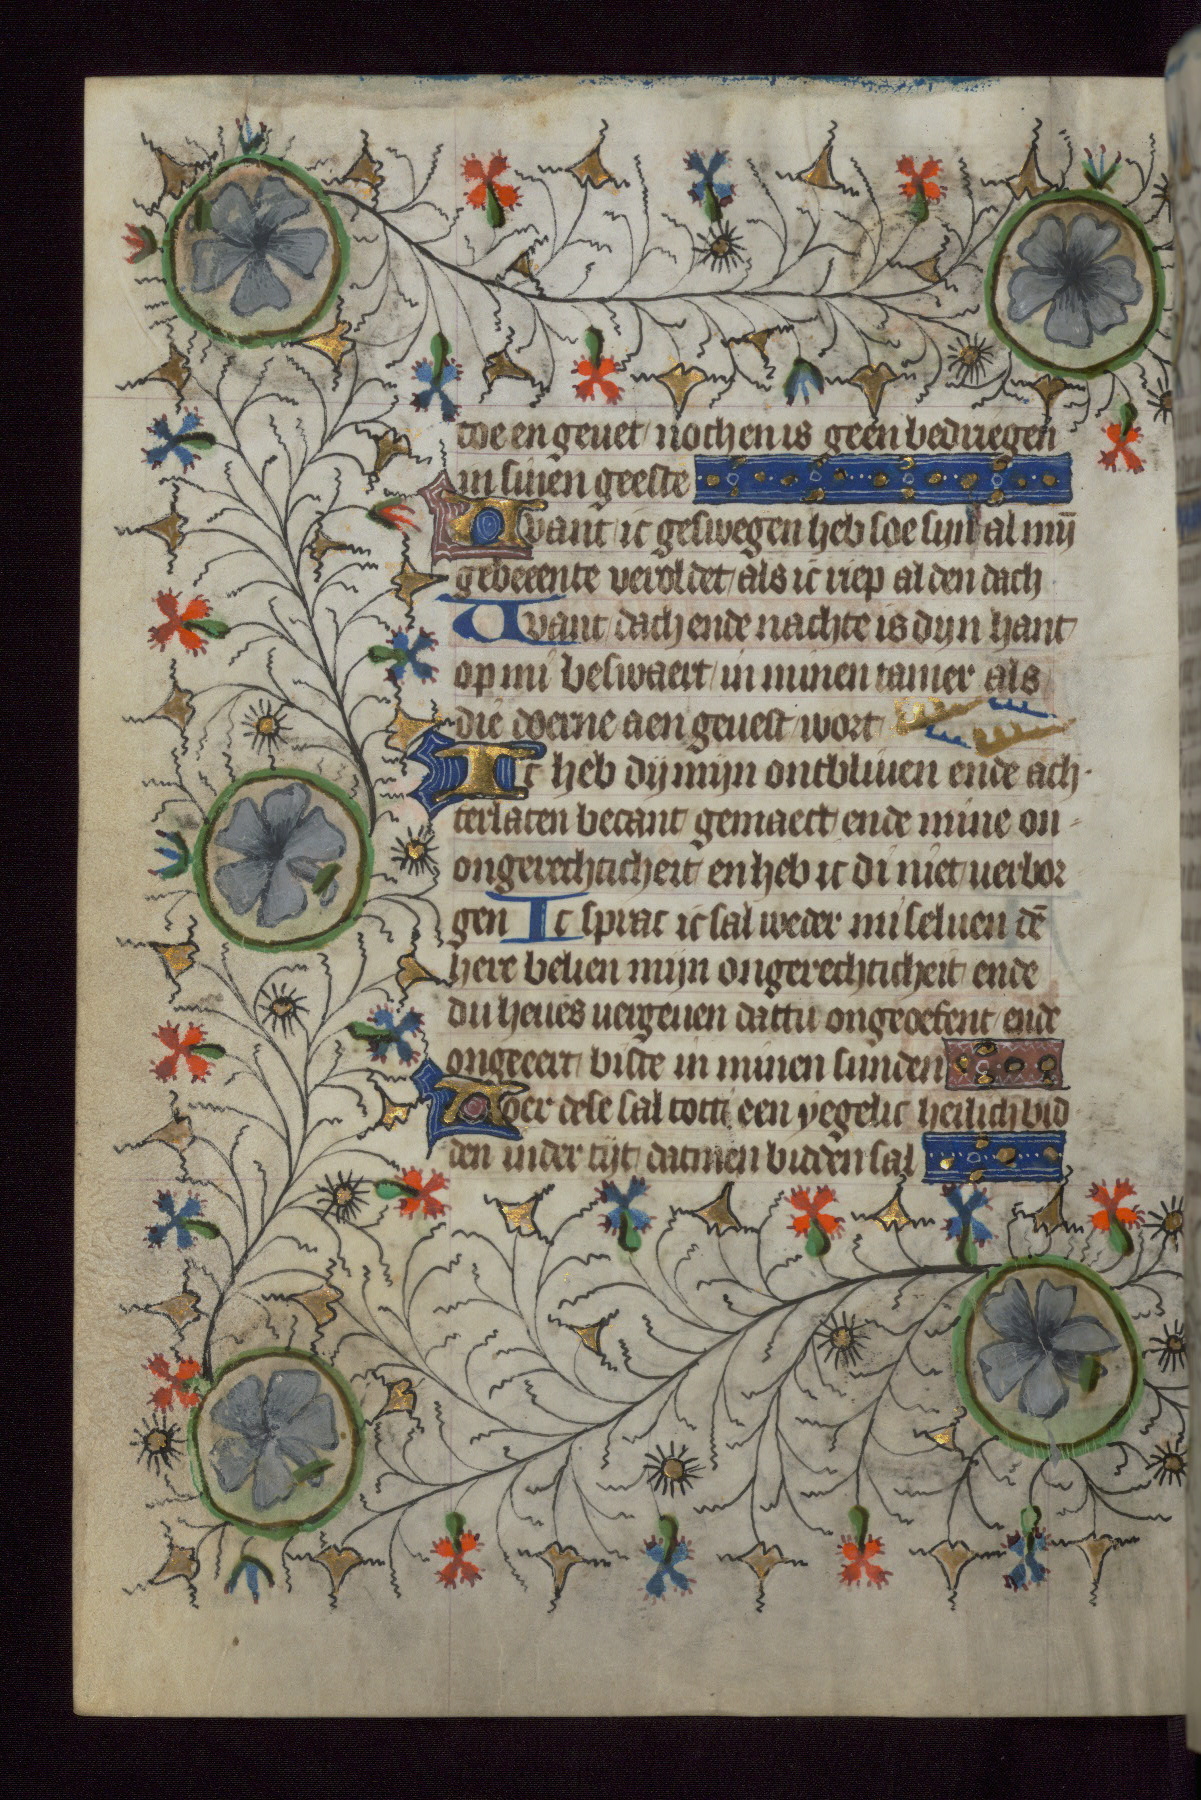 toe en geuet/ noch en is geen bedriegen
in sinen geeste
Want ic geswegen heb soe sijn al mij̄
gebeente veroldet/ als ic riep al den dach
Want/ dach ende nachte is dijn hant
op mi beswaert/ in minen iamer als
die doerne aen geuest wort
Ic heb dij mijn ontbliuen ende ach-
terlaten becant gemaect/ ende mine on-
ongerechticheit en heb ic di niet uerbor
gen Ic sprac ic sal weder mi seluen dē
here belien mijn ongerechticheit/ ende
du heues uergeuen dattu ongeoefent/ ende
ongeeert biste in minen sunden
Voer dese sal totti een yegelic heilich bid
den inder tijt/ datmen bidden sal